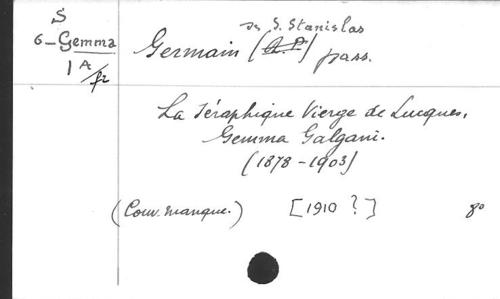 S
6-Gemma
1 A/fr
de S. Stanislas
Germain (A. P.) pass.
La Séraphique Vierge de Lucques,
Gemma Galgani.
(1878-1903)
(Couv. manque.) [1910 ?] 8º